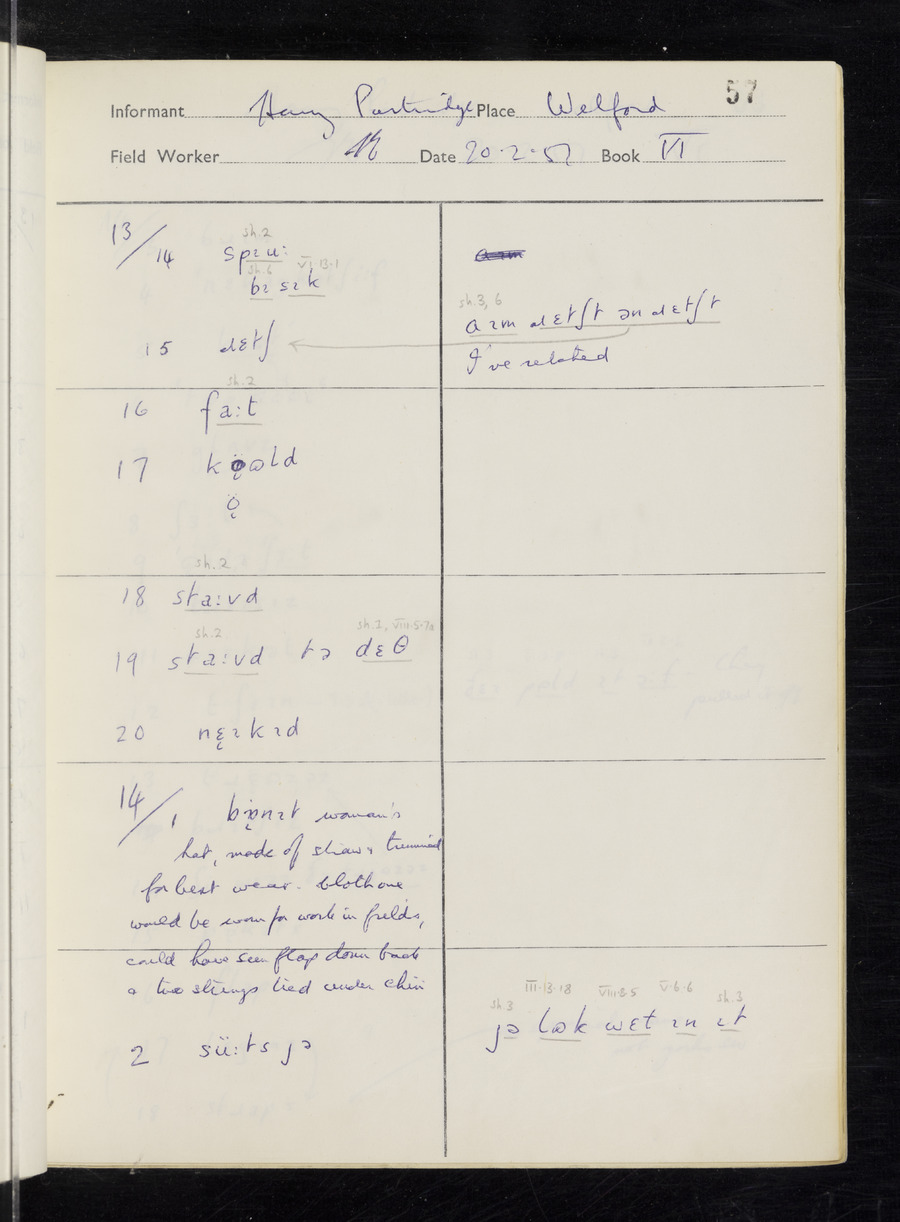 57
Informant Harry Partridge Place Welford
Field Worker Date 20·2·57 Book VI
13/
sh.2
14 spɪu:
sh.6 VI·13·1
bɪ sɪk
sh.3, 6
aɪm dɛtʃt ən dɛtʃt
15 dɛtʃ
I've related
sh.2
16 fa:t
17 kɔ̈ʊld
ö̜
sh.2
18 sta:vd
sh.2 sh.1, VIII·5·7a
19 sta:vd tə dɛθ
20 nɛ̜ɪkɪd
14/
1 woman's
hat, made of straw & trimmed
for best wear. Cloth one
would be worn for work in fields,
could have seen flap down back
& two strings tied under chin
III·13·18 VIII·3·5 V·6·6
sh.3 sh.3
jə lʊk wɛt ɪn ɪt
2 sü:ts jə